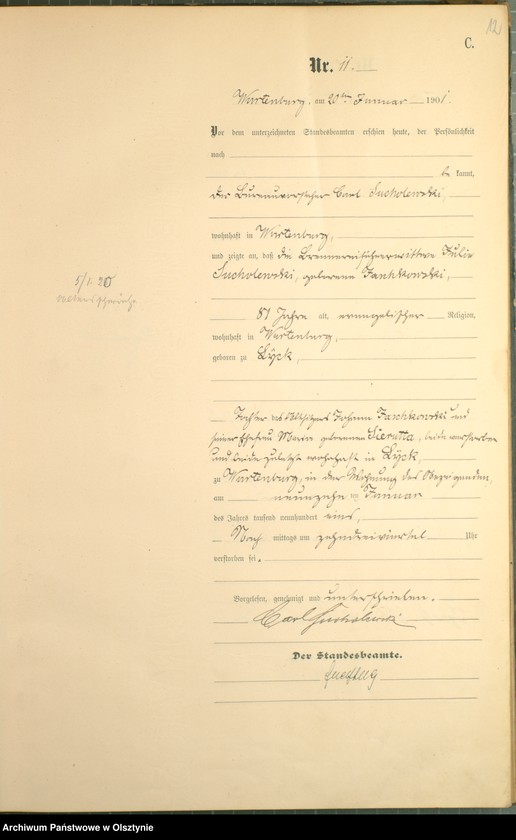 12
C.
Nr. 11.
Wartenburg, am 20ten Januar 1901.
Vor dem unterzeichneten Standesbeamten erschien heute, der Persönlichkeit
nach
be kannt,
der Bureauvorsteher Carl Sucholewski,
wohnhaft in Wartenburg,
und zeigte an, daß die Brennereiführerwittwe Julie
Sucholewski, geborene Jaschkowski,
81 Jahre alt, evangelischer Religion,
wohnhaft in Wartenburg,
geboren zu Lÿck,
5/1. 20
Altersschwäche
Tochter des Altsitzers Johann Jaschkowski und
seiner Ehefrau Marie geborenen Sierutta, beide verstorben
und beide zuletzt wohnhaft in Lÿck,
zu Wartenburg, in der Wohnung des Anzeigenden,
am neunzehn ten Januar
des Jahres tausend neunhundert eins,
Nach mittags um zehndreiviertel Uhr
verstorben sei.
Vorgelesen, genehmigt und unterschrieben.
Carl Sucholewski
Der Standesbeamte.
Archiwum Państwowe w Olsztynie